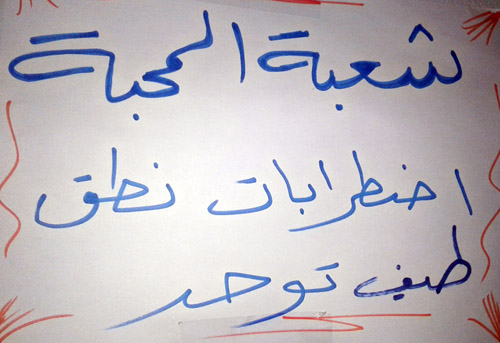 شعبة المحبة
اضطرابات نطق
طيف توحد